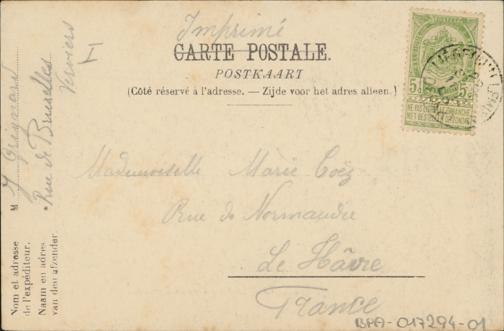 Imprimé
CARTE POSTALE.
POSTKAART
(Côté réservé à l'adresse. — Zijde voor het adres alleen.)
5 5
NE PAS LIVRER LE DIMANCHE
NIET BESTELLEN OP ZONDAG
Mademoiselle Marie
Rue de Normandie
Le Hâvre
France
Nom et adresse
de l'expéditeur.
Naam en adres
van den afzender
M J
Rue de Bruxelles
Verviers
BPA-017294-01